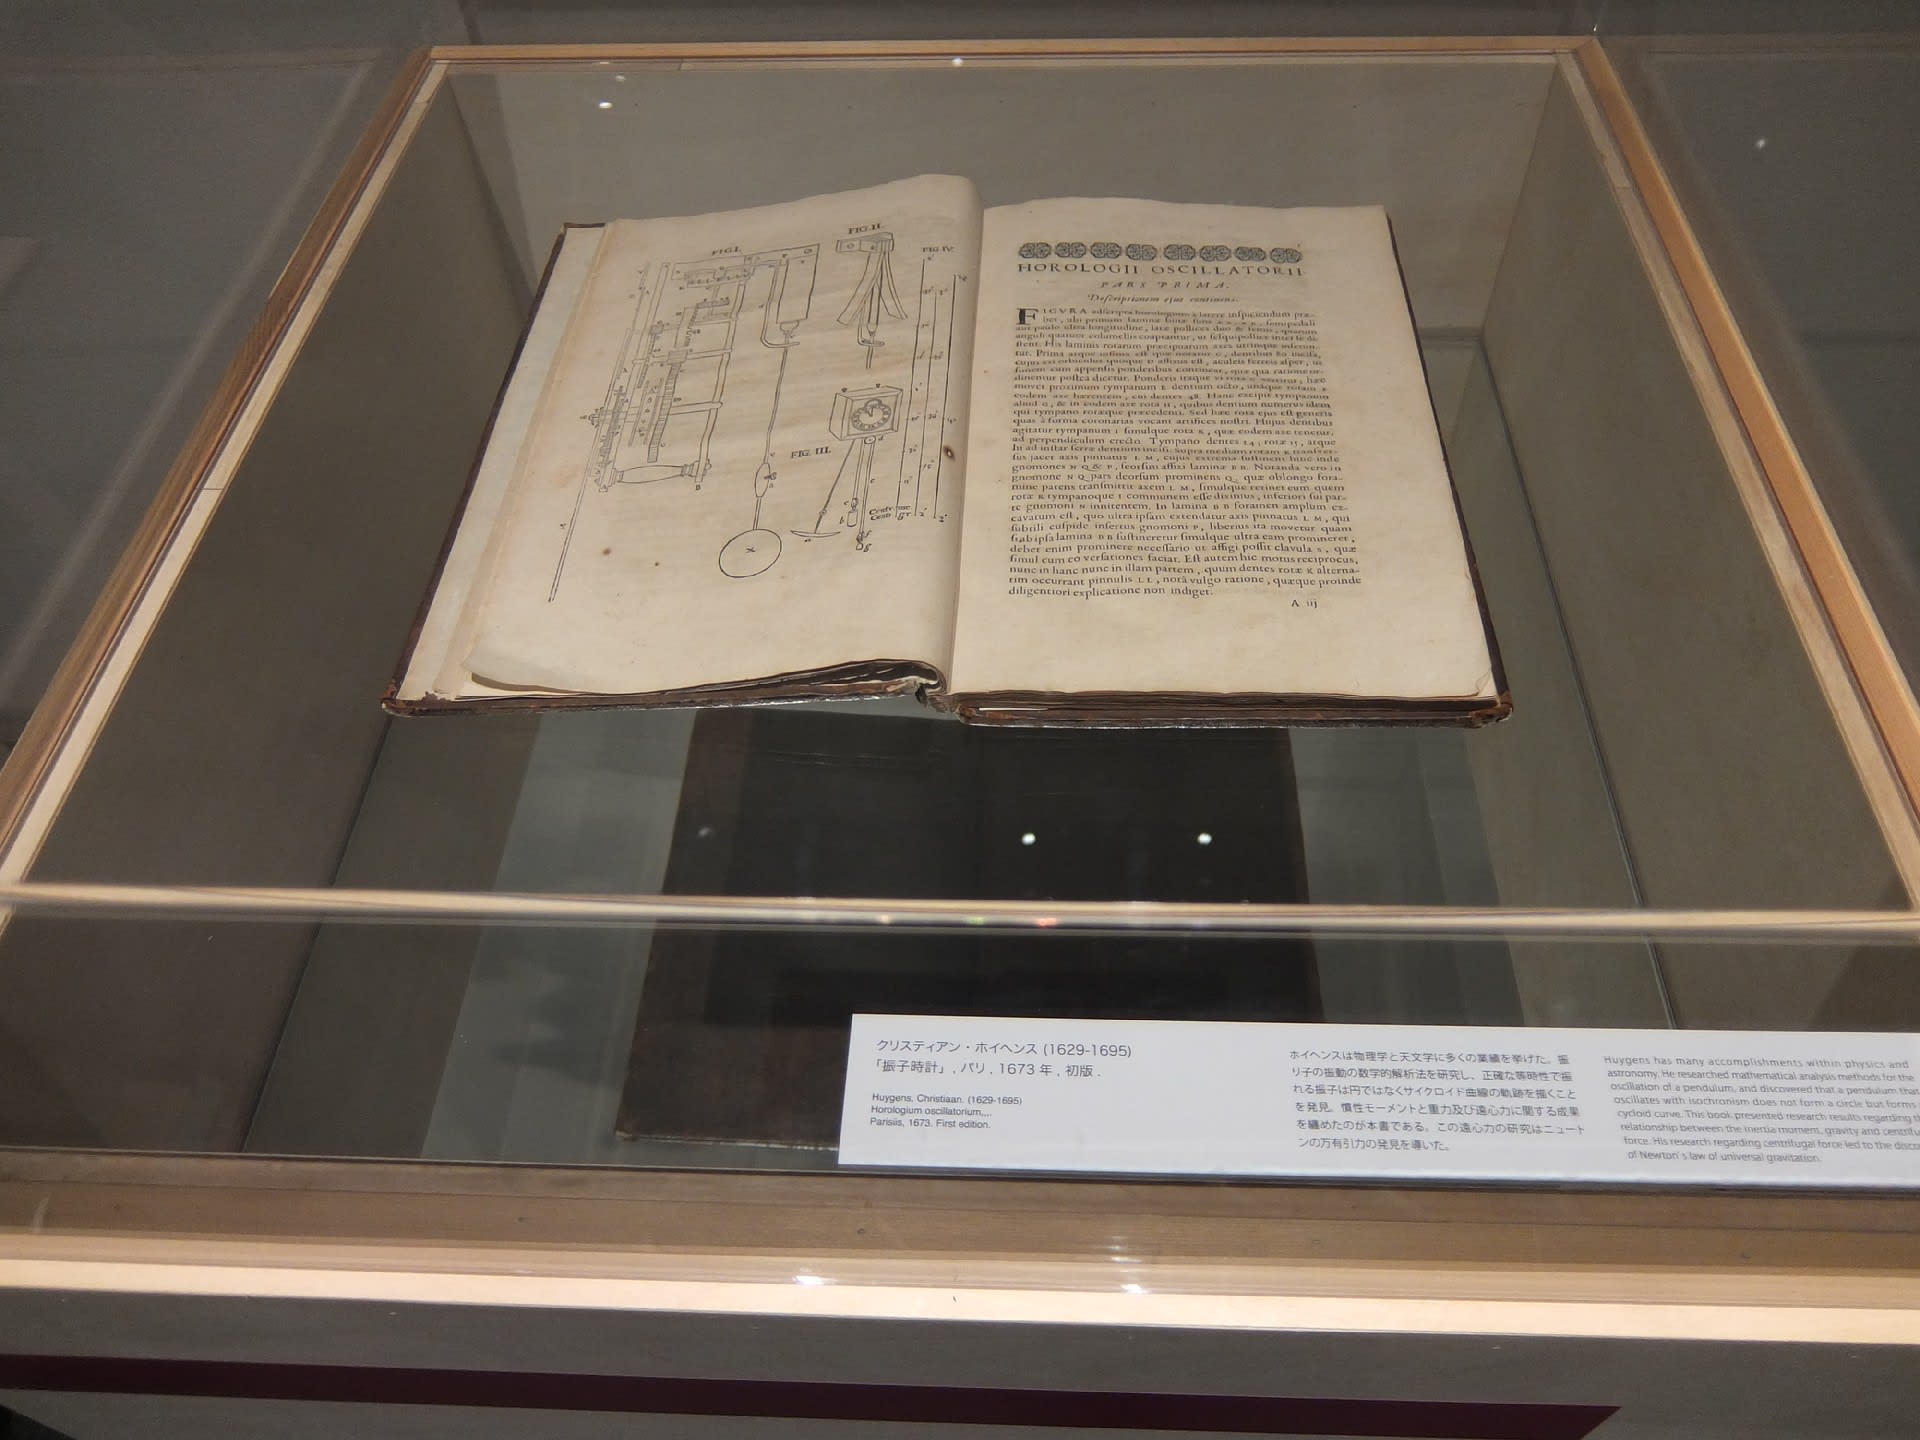 FIG. I.
FIG. II.
FIG. IV.
FIG. III.
HOROLOGII OSCILLATORII
PARS PRIMA.
Descriptionem ejus continens.
FIGVRA adscripta horologium à latere inspiciendum præ-
bet, ubi primum laminæ binæ sunt semipedali
aut paulo ultra longitudine, latæ pollices duo & semis, quarum
anguli quatuor columellis coaptantur, ut sesquipollice inter se di-
stent. His laminis rotarum præcipuarum axes utrinque inserun-
tur. Prima atque infima est quæ notatur C, dentibus 80 incisa,
cujus axi orbiculus quoque D affixus est, aculeis ferreis asper, ut
funem cum appensis ponderibus contineat, quæ qua ratione or-
dinentur postea dicetur. Ponderis itaque vi rota C vertitur, hæc
movet proximum tympanum E dentium octo, unàque rotam F
eodem axe hærentem, cui dentes 48. Hanc excipit tympanum
aliud G, & in eodem axe rota H, quibus dentium numerus idem
qui tympano rotæque præcedenti. Sed hæc rota ejus est generis
quas à forma coronarias vocant artifices nostri. Hujus dentibus
agitatur tympanum I simulque rota K, quæ eodem axe tenetur,
ad perpendiculum erecto. Tympano dentes 24; rotæ 15, atque
hi ad instar serræ dentium incisi. Supra mediam rotam K transver-
sus jacet axis pinnatus L M, cujus extrema sustinent hinc inde
gnomones N Q & P, seorsim affixi laminæ B B. Notanda vero in
gnomone N Q pars deorsum prominens Q, quæ oblongo fora-
mine patens transmittit axem L M, simulque retinet eum quem
rotæ K tympanoque I communem esse diximus, inferiori sui par-
te gnomoni N innitentem. In lamina B B foramen amplum ex-
cavatum est, quo ultra ipsam extendatur axis pinnatus L M, qui
subtili cuspide insertus gnomoni P, liberius ita movetur quam
si ab ipsa lamina B B sustineretur simulque ultra eam promineret,
debet enim prominere necessario ut affigi possit clavula S, quæ
simul cum eo versationes faciat. Est autem hic motus reciprocus,
nunc in hanc nunc in illam partem, quum dentes rotæ K alterna-
tim occurrant pinnulis L L, notâ vulgo ratione, quæque proinde
diligentiori explicatione non indiget.
A iij
クリスティアン・ホイヘンス (1629-1695)
「振子時計」, パリ, 1673 年, 初版.
Huygens, Christiaan. (1629-1695)
Horologium oscillatorium,,,.
Parisiis, 1673. First edition.
ホイヘンスは物理学と天文学に多くの業績を挙げた。振
り子の振動の数学的解析法を研究し、正確な等時性で振
れる振子は円ではなくサイクロイド曲線の軌跡を描くこと
を発見。慣性モーメントと重力及び遠心力に関する成果
を纏めたのが本書である。この遠心力の研究はニュート
ンの万有引力の発見を導いた。
Huygens has many accomplishments within physics and
astronomy. He researched mathematical analysis methods for the
oscillation of a pendulum, and discovered that a pendulum that
oscillates with isochronism does not form a circle but forms
cycloid curve. This book presented research results regarding
relationship between the inertia moment, gravity and
force. His research regarding centrifugal force led to the
of Newton's law of universal gravitation.